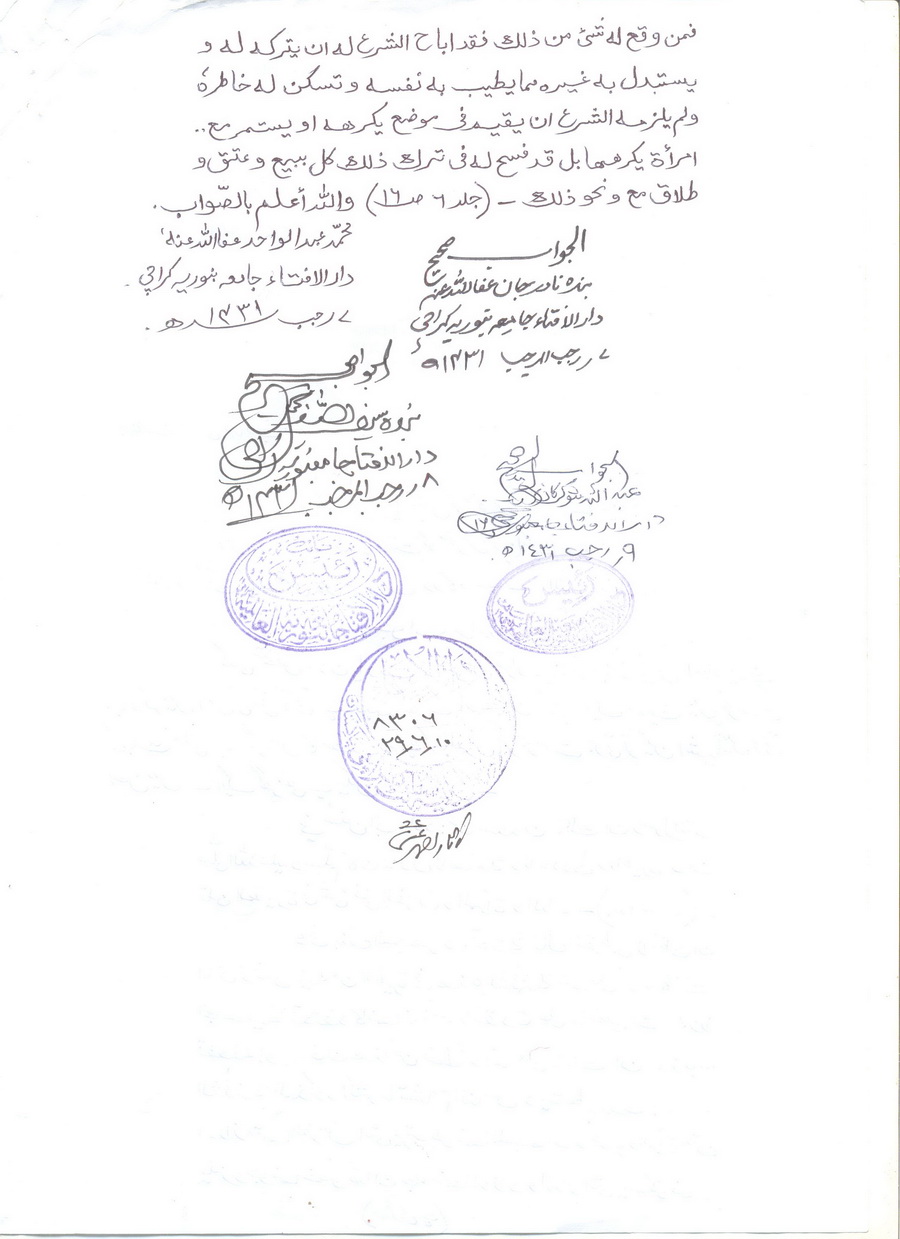 فمن وقع له شئ من ذلك فقد اباح الشرع له ان يتركه له و
يستبدل به غيره مما يطيب به نفسه و تسكن له خاطرهٗ
ولم يلزمه الشرع ان يقيم فى موضع يكرهه او يستمر مع ..
امرأة يكرهها بل قد فسح له فى ترك ذلك كل ببيع و عتق و
طلاق مع و نحو ذلك – (جلد ٦ صـ ١٦) واللّٰه أعلم بالصّواب.
محمّد عبدالواحد عفااللّٰه عنه
دارالافتاء جامعه بنوریه کراچی
٧ رجب ١٤٣١ ھ
الجواب صحیح
بنده نادر جان عفااللّٰه عنه
دارالافتاء جامعه بنوریه کراچی
٧ رجب المرجب ١٤٣١ ھ
الجواب صحیح
بنده سیف اللّٰه
دارالافتاء جامعه بنوریه
٨ رجب المرجب ١٤٣١ ھ
الجواب صحیح
عبداللّٰه شوکت
دارالافتاء جامعه بنوریه
٩ رجب ١٤٣١ ھ
نائب
رئیس
دارالافتاء جامعه بنوریه العالمیه
رئیس
٨٣٠٦
٢٩/٦/١٠